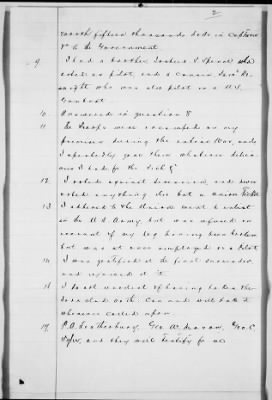 2
worth fifteen thousands dols in
to the Government
9. I had a brother, Joshua S Spence who
acted as pilot, and a Cousin
who was also pilot on a U.S.
Gunboat
10. Answered in question 8
11. The troops were encamped on my
premises during the entire War, and
I repeatedly gave them whatever delica-
cies I had for the sick
12. I voted against Secession, and never
voted anything else but a Union Ticket
13. I adhered to the Union went to enlist
in the U.S. Army but was refused on
account of my leg having been broken
but was at once employed as a Pilot
14. I was gratified at the final surrender
and rejoiced at it
16. I do not recollect of having taken the
Iron clad oath. Can and will take it
whenever called upon
17. Geo. W. Geo. C.
and they will testify for me